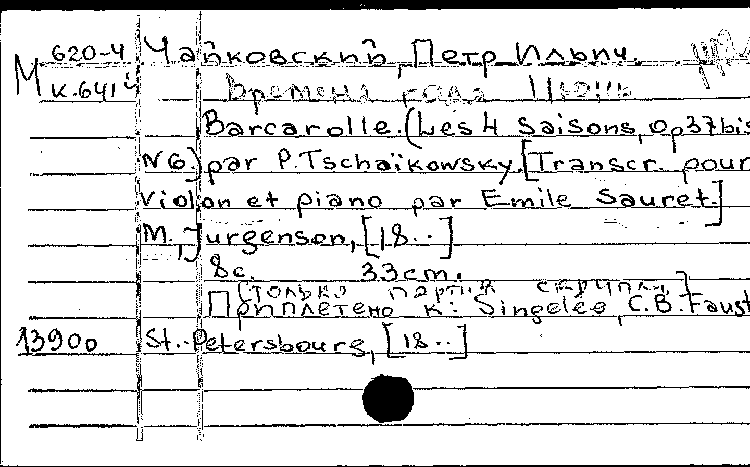 М 620-4 Чайковский, Петр Ильич.
к.641
Времена года Июнь
Barcarolle. (Les 4 Saisons, op 37 bis
N 6.) par P. Tschaïkowsky. [Transcr. pour
violon et piano par Emile Sauret.]
M., Jurgenson, [18..]
8 с. 33 cm.
(только партия скрипки)
Приплетено к: Singelée, C.B. Faust
13900 St.-Petersbourg, [18..]